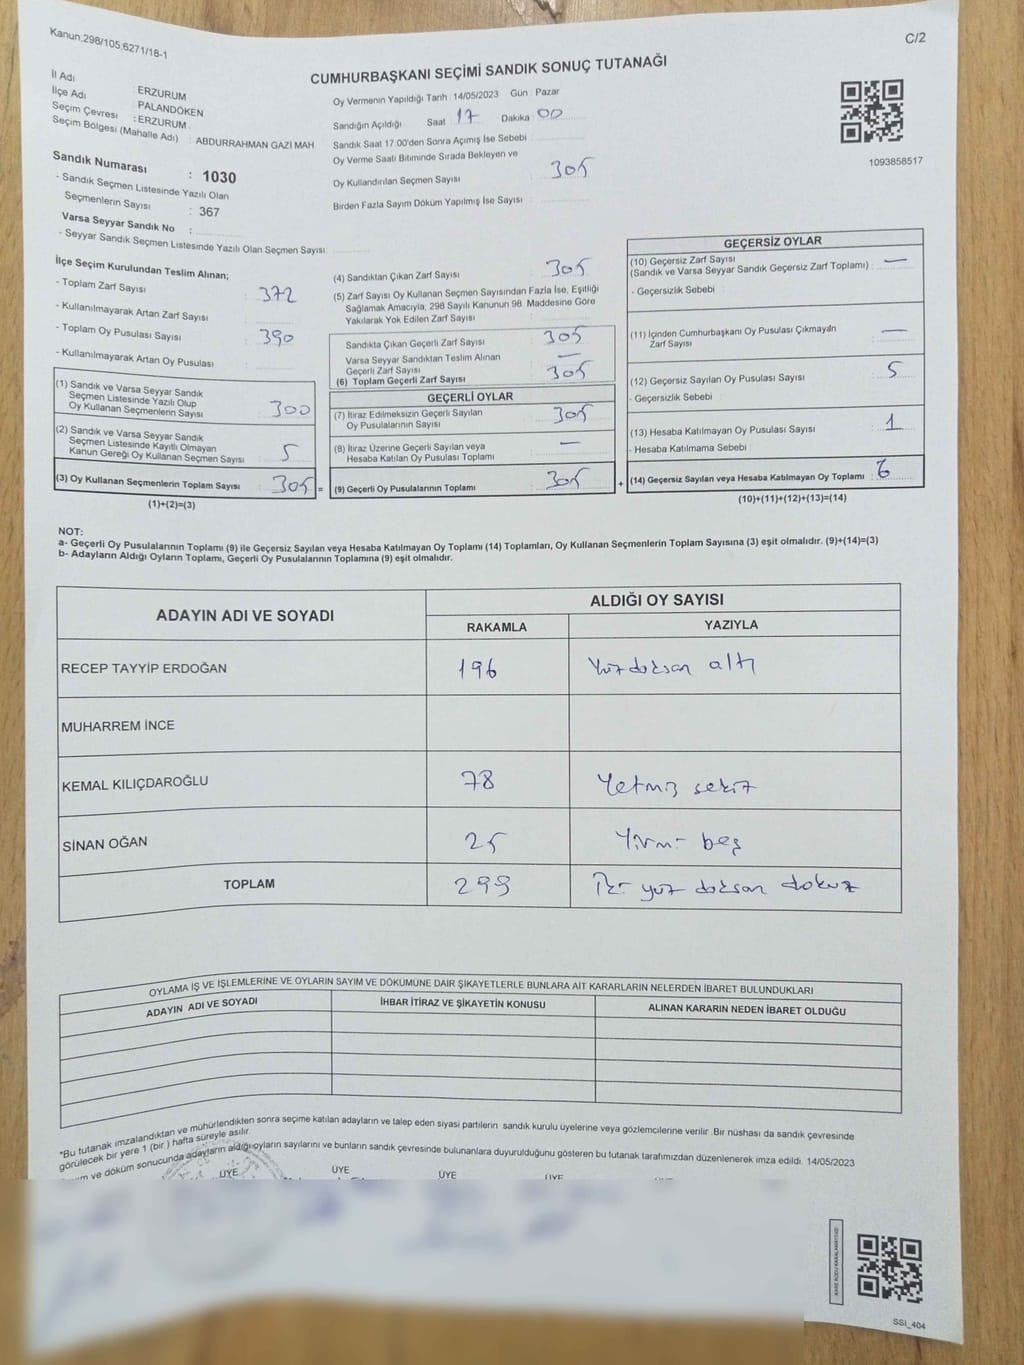 Kanun:298/105;6271/18-1
C/2
CUMHURBAŞKANI SEÇİMİ SANDIK SONUÇ TUTANAĞI
İl Adı : ERZURUM
İlçe Adı PALANDÖKEN
Seçim Çevresi : ERZURUM
Seçim Bölgesi (Mahalle Adı) : ABDURRAHMAN GAZİ MAH
Oy Vermenin Yapıldığı Tarih 14/05/2023 Gün Pazar
Sandığın Açıldığı Saat 17 Dakika 00
Sandık Saat 17.00'den Sonra Açımış İse Sebebi
Oy Verme Saati Bitiminde Sırada Bekleyen ve
Oy Kullandırılan Seçmen Sayısı 305
Birden Fazla Sayım Döküm Yapılmış İse Sayısı
1093858517
Sandık Numarası : 1030
- Sandık Seçmen Listesinde Yazılı Olan
Seçmenlerin Sayısı : 367
Varsa Seyyar Sandık No :
- Seyyar Sandık Seçmen Listesinde Yazılı Olan Seçmen Sayısı:
İlçe Seçim Kurulundan Teslim Alınan;
- Toplam Zarf Sayısı : 372
- Kullanılmayarak Artan Zarf Sayısı :
- Toplam Oy Pusulası Sayısı : 390
- Kullanılmayarak Artan Oy Pusulası :
(1) Sandık ve Varsa Seyyar Sandık
Seçmen Listesinde Yazılı Olup
Oy Kullanan Seçmenlerin Sayısı : 300
(2) Sandık ve Varsa Seyyar Sandık
Seçmen Listesinde Kayıtlı Olmayan
Kanun Gereği Oy Kullanan Seçmen Sayısı : 5
(3) Oy Kullanan Seçmenlerin Toplam Sayısı : 305 =
(1)+(2)=(3)
(4) Sandıktan Çıkan Zarf Sayısı : 305
(5) Zarf Sayısı Oy Kullanan Seçmen Sayısından Fazla İse, Eşitliği
Sağlamak Amacıyla, 298 Sayılı Kanunun 98. Maddesine Göre
Yakılarak Yok Edilen Zarf Sayısı
Sandıkta Çıkan Geçerli Zarf Sayısı : 305
Varsa Seyyar Sandıktan Teslim Alınan
Geçerli Zarf Sayısı —
(6) Toplam Geçerli Zarf Sayısı : 305
GEÇERLİ OYLAR
(7) İtiraz Edilmeksizin Geçerli Sayılan
Oy Pusulalarının Sayısı : 305
(8) İtiraz Üzerine Geçerli Sayılan veya
Hesaba Katılan Oy Pusulası Toplamı : —
(9) Geçerli Oy Pusulalarının Toplamı : 305 +
GEÇERSİZ OYLAR
(10) Geçersiz Zarf Sayısı
(Sandık ve Varsa Seyyar Sandık Geçersiz Zarf Toplamı) : —
- Geçersizlik Sebebi :
(11) İçinden Cumhurbaşkanı Oy Pusulası Çıkmayan
Zarf Sayısı : —
(12) Geçersiz Sayılan Oy Pusulası Sayısı : 5
- Geçersizlik Sebebi :
(13) Hesaba Katılmayan Oy Pusulası Sayısı : 1
- Hesaba Katılmama Sebebi :
(14) Geçersiz Sayılan veya Hesaba Katılmayan Oy Toplamı : 6
(10)+(11)+(12)+(13)=(14)
NOT:
a- Geçerli Oy Pusulalarının Toplamı (9) ile Geçersiz Sayılan veya Hesaba Katılmayan Oy Toplamı (14) Toplamları, Oy Kullanan Seçmenlerin Toplam Sayısına (3) eşit olmalıdır. (9)+(14)=(3)
b- Adayların Aldığı Oyların Toplamı, Geçerli Oy Pusulalarının Toplamına (9) eşit olmalıdır.
ADAYIN ADI VE SOYADI ALDIĞI OY SAYISI
RAKAMLA YAZIYLA
RECEP TAYYİP ERDOĞAN 196 Yüzdoksan altı
MUHARREM İNCE
KEMAL KILIÇDAROĞLU 78 Yetmiş sekiz
SİNAN OĞAN 25 Yirmi beş
TOPLAM 299 İki yüz doksan dokuz
OYLAMA İŞ VE İŞLEMLERİNE VE OYLARIN SAYIM VE DÖKÜMÜNE DAİR ŞİKAYETLERLE BUNLARA AİT KARARLARIN NELERDEN İBARET BULUNDUKLARI
ADAYIN ADI VE SOYADI İHBAR İTİRAZ VE ŞİKAYETİN KONUSU ALINAN KARARIN NEDEN İBARET OLDUĞU
*Bu tutanak imzalandıktan ve mühürlendikten sonra seçime katılan adayların ve talep eden siyasi partilerin sandık kurulu üyelerine veya gözlemcilerine verilir. Bir nüshası da sandık çevresinde
görülecek bir yere 1 (bir ) hafta süreyle asılır.
ve döküm sonucunda adayların aldığı oyların sayılarını ve bunların sandık çevresinde bulunanlara duyurulduğunu gösteren bu tutanak tarafımızdan düzenlenerek imza edildi. 14/05/2023
ÜYE ÜYE ÜYE ÜYE
SSI_404